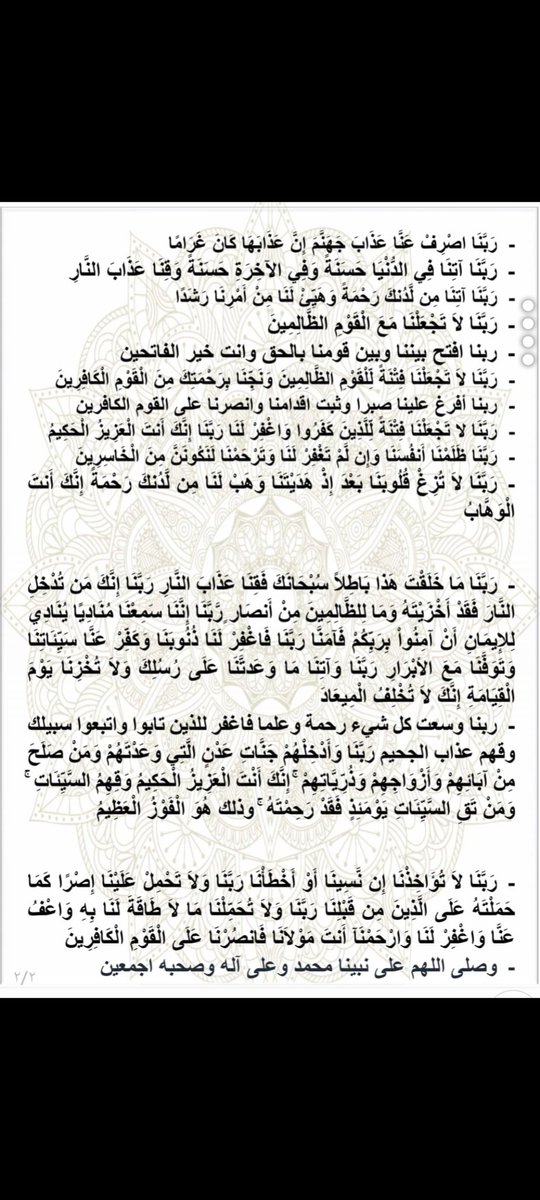 - رَبَّنَا اصْرِفْ عَنَّا عَذَابَ جَهَنَّمَ إِنَّ عَذَابَهَا كَانَ غَرَامًا
- رَبَّنَا آتِنَا فِي الدُّنْيَا حَسَنَةً وَفِي الآخِرَةِ حَسَنَةً وَقِنَا عَذَابَ النَّارِ
- رَبَّنَا آتِنَا مِن لَّدُنكَ رَحْمَةً وَهَيِّئْ لَنَا مِنْ أَمْرِنَا رَشَدًا
- رَبَّنَا لاَ تَجْعَلْنَا مَعَ الْقَوْمِ الظَّالِمِينَ
- ربنا افتح بيننا وبين قومنا بالحق وانت خير الفاتحين
- رَبَّنَا لاَ تَجْعَلْنَا فِتْنَةً لِّلْقَوْمِ الظَّالِمِينَ وَنَجِّنَا بِرَحْمَتِكَ مِنَ الْقَوْمِ الْكَافِرِينَ
- ربنا أفرغ علينا صبرا وثبت اقدامنا وانصرنا على القوم الكافرين
- رَبَّنَا لاَ تَجْعَلْنَا فِتْنَةً لِّلَّذِينَ كَفَرُوا وَاغْفِرْ لَنَا رَبَّنَا إِنَّكَ أَنتَ الْعَزِيزُ الْحَكِيمُ
- رَبَّنَا ظَلَمْنَا أَنفُسَنَا وَإِن لَّمْ تَغْفِرْ لَنَا وَتَرْحَمْنَا لَنَكُونَنَّ مِنَ الْخَاسِرِينَ
- رَبَّنَا لاَ تُزِغْ قُلُوبَنَا بَعْدَ إِذْ هَدَيْتَنَا وَهَبْ لَنَا مِن لَّدُنكَ رَحْمَةً إِنَّكَ أَنتَ
الْوَهَّابُ
- رَبَّنَا مَا خَلَقْتَ هَذَا بَاطِلاً سُبْحَانَكَ فَقِنَا عَذَابَ النَّارِ رَبَّنَا إِنَّكَ مَن تُدْخِلِ
النَّارَ فَقَدْ أَخْزَيْتَهُ وَمَا لِلظَّالِمِينَ مِنْ أَنصَارٍ رَّبَّنَا إِنَّنَا سَمِعْنَا مُنَادِيًا يُنَادِي
لِلإِيمَانِ أَنْ آمِنُواْ بِرَبِّكُمْ فَآمَنَّا رَبَّنَا فَاغْفِرْ لَنَا ذُنُوبَنَا وَكَفِّرْ عَنَّا سَيِّئَاتِنَا
وَتَوَفَّنَا مَعَ الأَبْرَارِ رَبَّنَا وَآتِنَا مَا وَعَدتَّنَا عَلَى رُسُلِكَ وَلاَ تُخْزِنَا يَوْمَ
الْقِيَامَةِ إِنَّكَ لاَ تُخْلِفُ الْمِيعَادَ
- ربنا وسعت كل شيء رحمة وعلما فاغفر للذين تابوا واتبعوا سبيلك
وقهم عذاب الجحيم رَبَّنَا وَأَدْخِلْهُمْ جَنَّاتِ عَدْنٍ الَّتِي وَعَدْتَهُمْ وَمَنْ صَلَحَ
مِنْ آبَائِهِمْ وَأَزْوَاجِهِمْ وَذُرِّيَّاتِهِمْ ۚ إِنَّكَ أَنْتَ الْعَزِيزُ الْحَكِيمُ وَقِهِمُ السَّيِّئَاتِ ۚ
وَمَنْ تَقِ السَّيِّئَاتِ يَوْمَئِذٍ فَقَدْ رَحِمْتَهُ ۚ وَذَلِكَ هُوَ الْفَوْزُ الْعَظِيمُ
- رَبَّنَا لاَ تُؤَاخِذْنَا إِن نَّسِينَا أَوْ أَخْطَأْنَا رَبَّنَا وَلاَ تَحْمِلْ عَلَيْنَا إِصْرًا كَمَا
حَمَلْتَهُ عَلَى الَّذِينَ مِن قَبْلِنَا رَبَّنَا وَلاَ تُحَمِّلْنَا مَا لاَ طَاقَةَ لَنَا بِهِ وَاعْفُ
عَنَّا وَاغْفِرْ لَنَا وَارْحَمْنَآ أَنتَ مَوْلاَنَا فَانصُرْنَا عَلَى الْقَوْمِ الْكَافِرِينَ
- وصلى اللهم على نبينا محمد وعلى آله وصحبه اجمعين
٢/٢